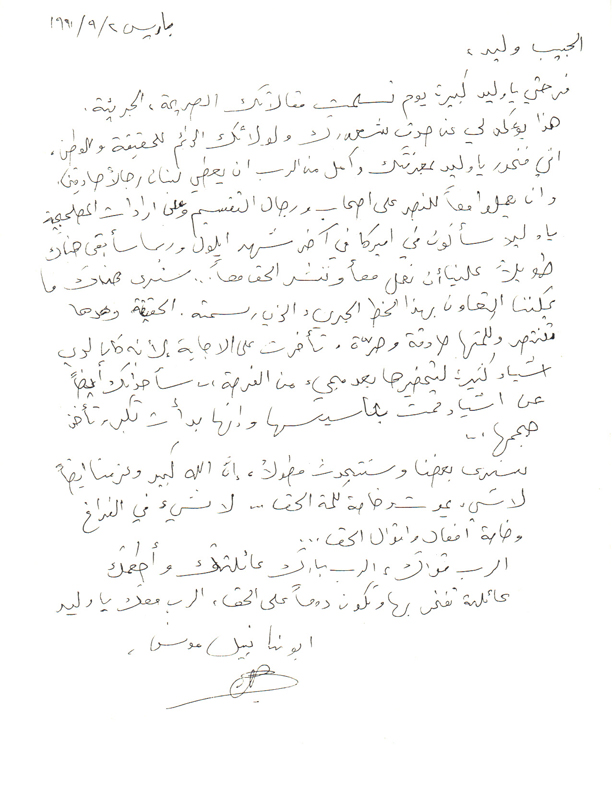 باريس ٢/٩/١٩٩١
الحبيب وليد،
فرحتي يا وليد كبيرة يوم تسلمت مقالاتك الصريحة، الجريئة.
هذا يؤكد لي عن صوت شعورك ولولائك الدائم للحقيقة وللوطن،
اني فخور يا وليد بمعرفتك وآمل من الرب ان يعطي لبنان رجالاً صادقين
وان يعملوا معاً للنصر على اصحاب ورجال التقسيم وعلى ارادات المصلحجية
يا وليد سأكون في اميركا في آخر شهر ايلول وربما سأبقى هناك
طويلاً علينا أن نعمل معاً وننشر الحق معاً... سنرى هناك ما
يمكننا التعاون بهذا الخط الجريء والذي رسمته. الحقيقة وحدها
تنتصر وكلمتها صادقة وحرّة، تأخرت على الاجابة لأنه كان لدي
اشياء كثيرة لتحضيرها بعد مجيء من الفرصة... سأخبرك أيضاً
عن اشياء تمت بتأسيسها وإنها بدأت تكبر وتأخذ
حجمها...
سنرى بعضنا وسنتحدث مطولاً، إنّ الله كبير وعزمنا ايضاً
لا شيء يموت وخاصة كلمة الحق... لا شيء في الفراغ
وخاصة أفعال واقوال الحق...
الرب قواك، الرب بارك عائلتك وأعطك
عائلة تفخر بها وتكون دوماً على الحق، الرب معك يا وليد
ابونا نبيل مونس،